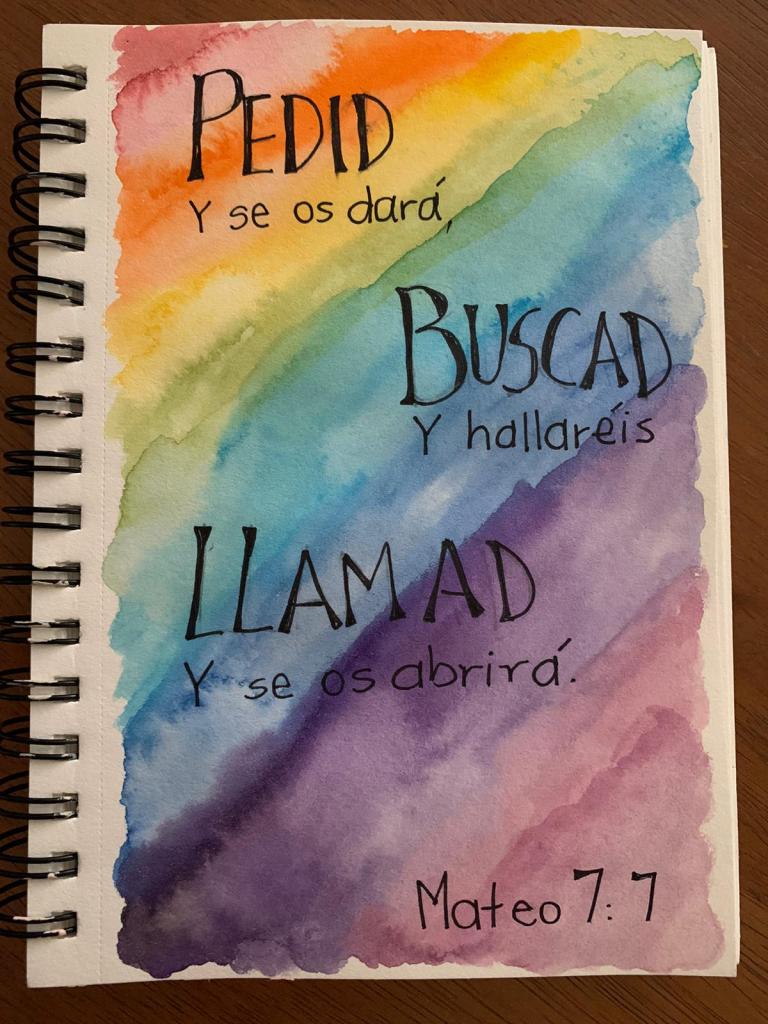 PEDID
Y se os dará,
BUSCAD
Y hallaréis
LLAMAD
Y se os abrirá.
Mateo 7:7